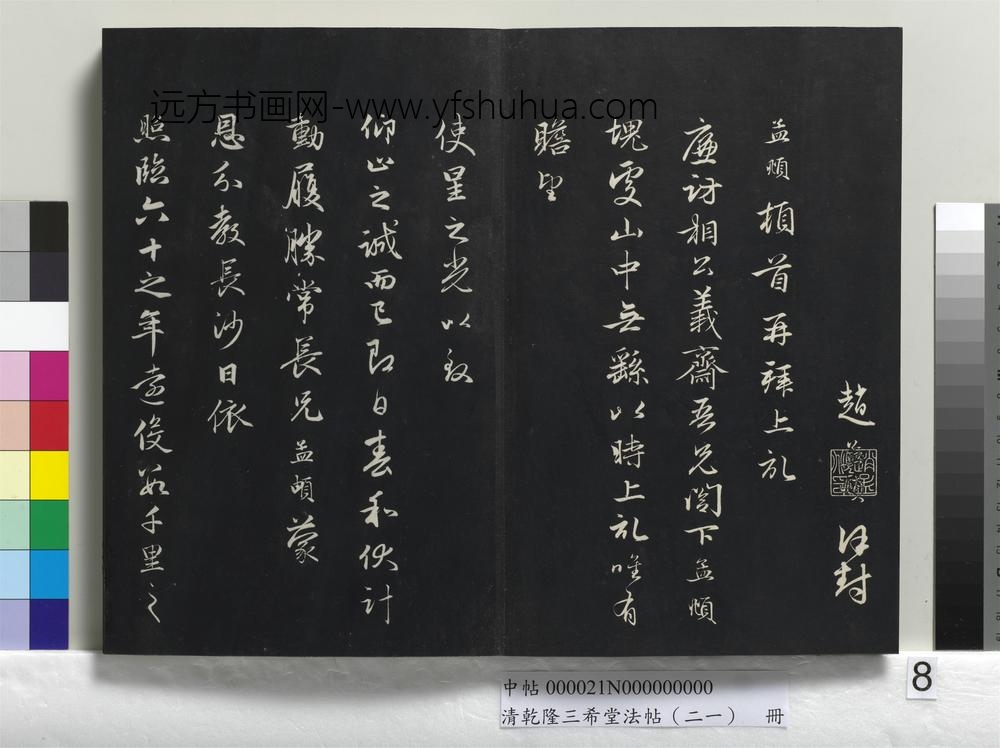 远方书画网-www.yfshuhua.com
趙
謹封
孟頫頓首再拜上記
廉訪相公義齋吾兄閣下孟頫
塊處山中無繇以時上記唯有
瞻望
使星之光以致
仰止之誠而已即日春和伏計
動履勝常長兄孟頫蒙
恩分教長沙日依
照臨六十之年遠役數千里之
中帖 000021N000000000
清乾隆三希堂法帖（二一） 冊
8